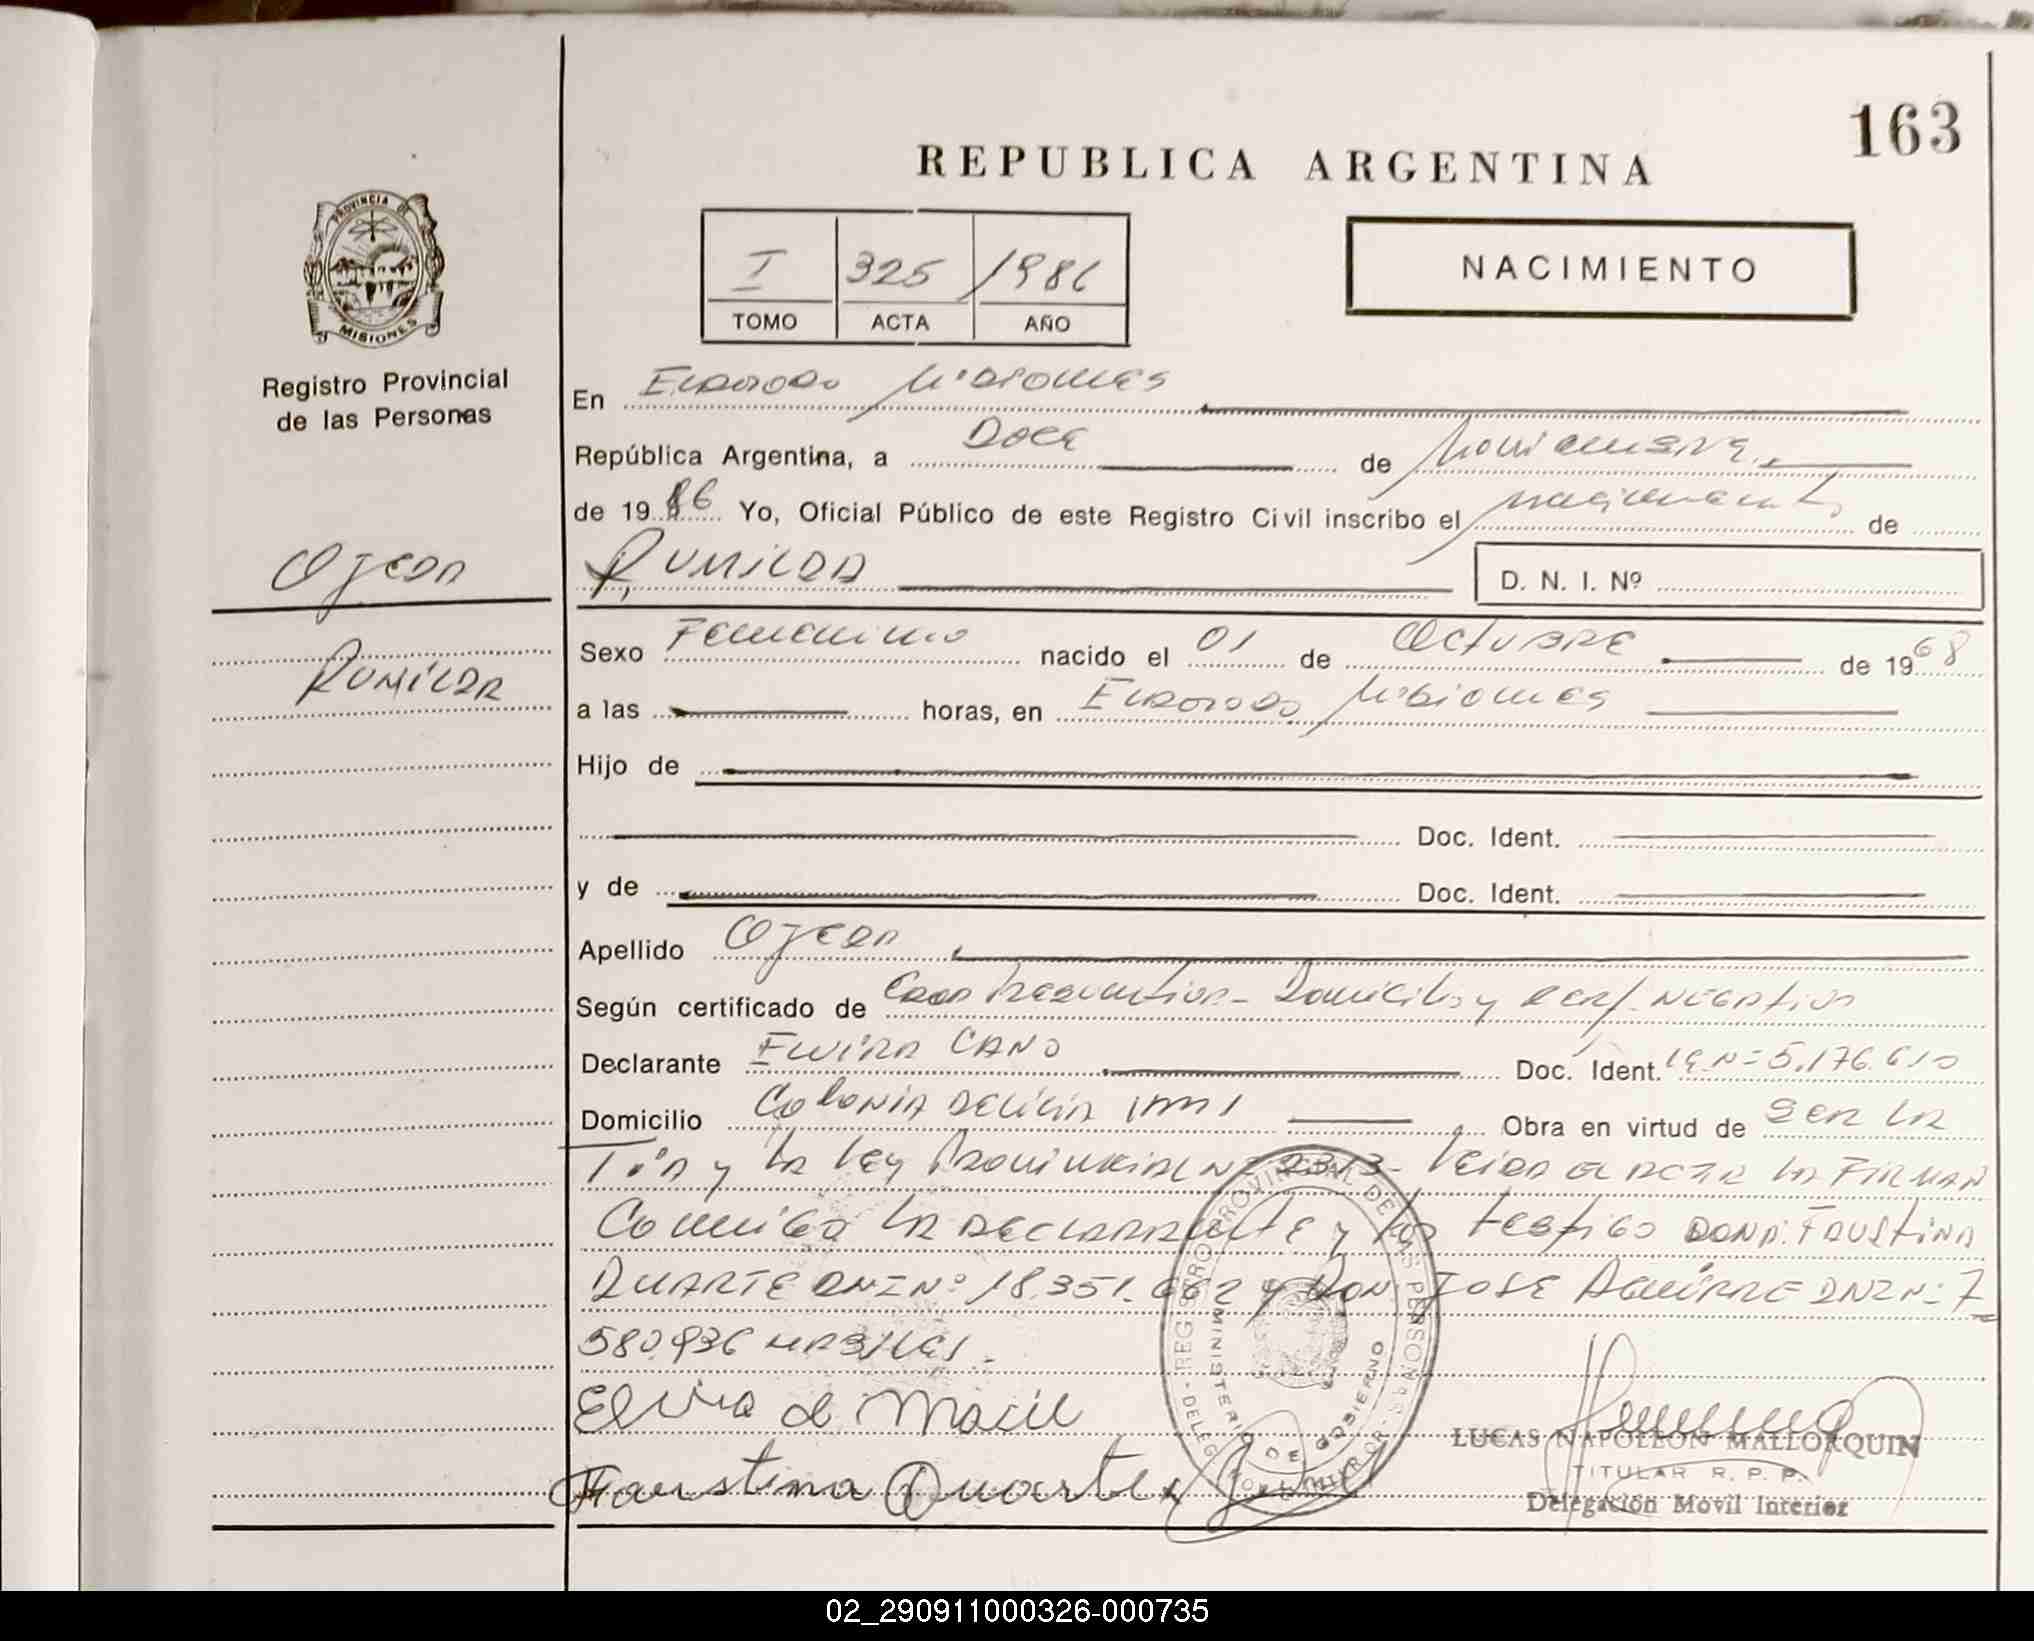 163
REPUBLICA ARGENTINA
I 325 /1986
TOMO ACTA AÑO
NACIMIENTO
PROVINCIA DE MISIONES
Registro Provincial
de las Personas
En Eldorado Misiones
República Argentina, a Doce de Noviembre
de 1986 Yo, Oficial Público de este Registro Civil inscribo el nacimiento de
Ojeda
Romilda
Rumilda D. N. I. Nº
Sexo Femenino nacido el 01 de Octubre de 1968
a las horas, en Eldorado Misiones
Hijo de
Doc. Ident.
y de Doc. Ident.
Apellido Ojeda
Según certificado de Edad Presuntiva - Domicilio y Cert. Negativo
Declarante Elvira Cano Doc. Ident. Nº 5.176.610
Domicilio Colonia Delicia Obra en virtud de ser la
Tia y la Ley Provincial Nº Leida el acta la firman
Conmigo la declarante y los testigo Doña Faustina
Duarte DNI Nº 18.351.662 y Don Jose Aguirre DNI Nº 7
580.936 habiles.
Elvira de Maciel
Faustina Duarte
REGISTRO PROVINCIAL DE LAS PERSONAS
MINISTERIO DE GOBIERNO
LUCAS NAPOLEON MALLORQUIN
TITULAR R. P. P.
Delegación Móvil Interior
02_290911000326-000735